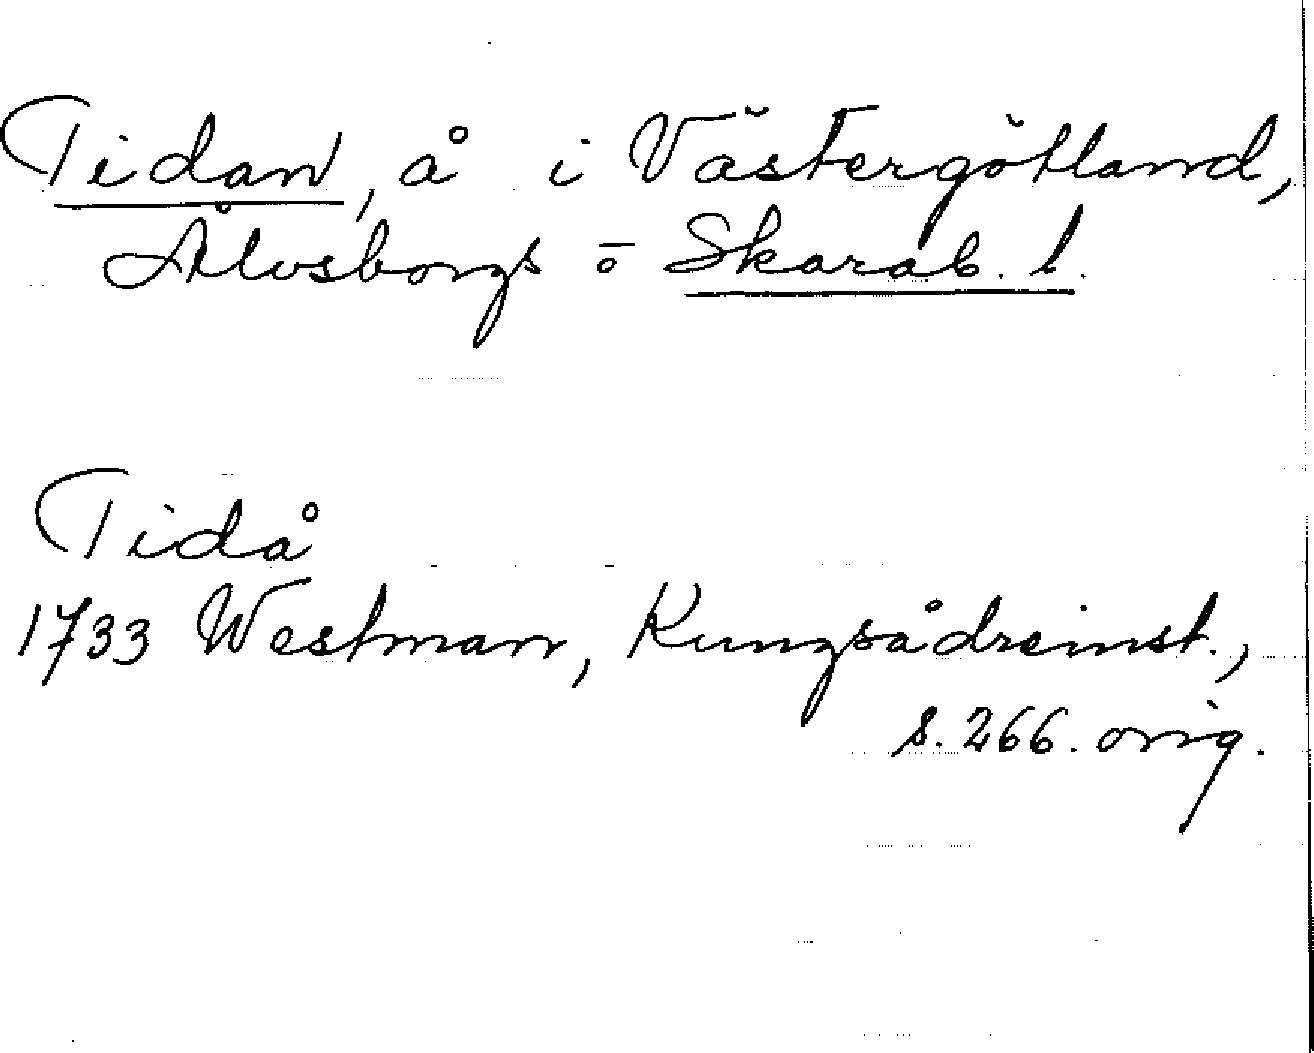 Tidan, å i Västergötland,
Ålvsborgs o Skarab. l.
Tidå
1733 Westman, Kungsådreinst.,
s. 266. orig.